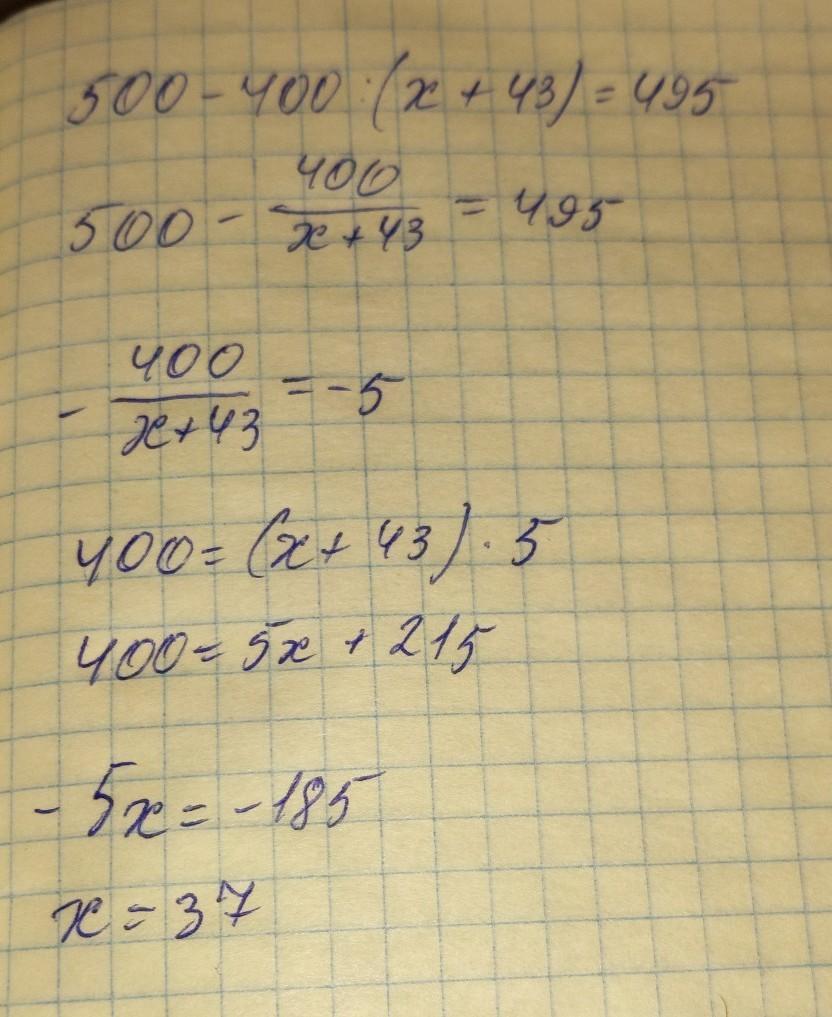 500 - 400 : (x + 43) = 495
500 - 400/(x + 43) = 495
- 400/(x + 43) = -5
400 = (x + 43) · 5
400 = 5x + 215
- 5x = -185
x = 37